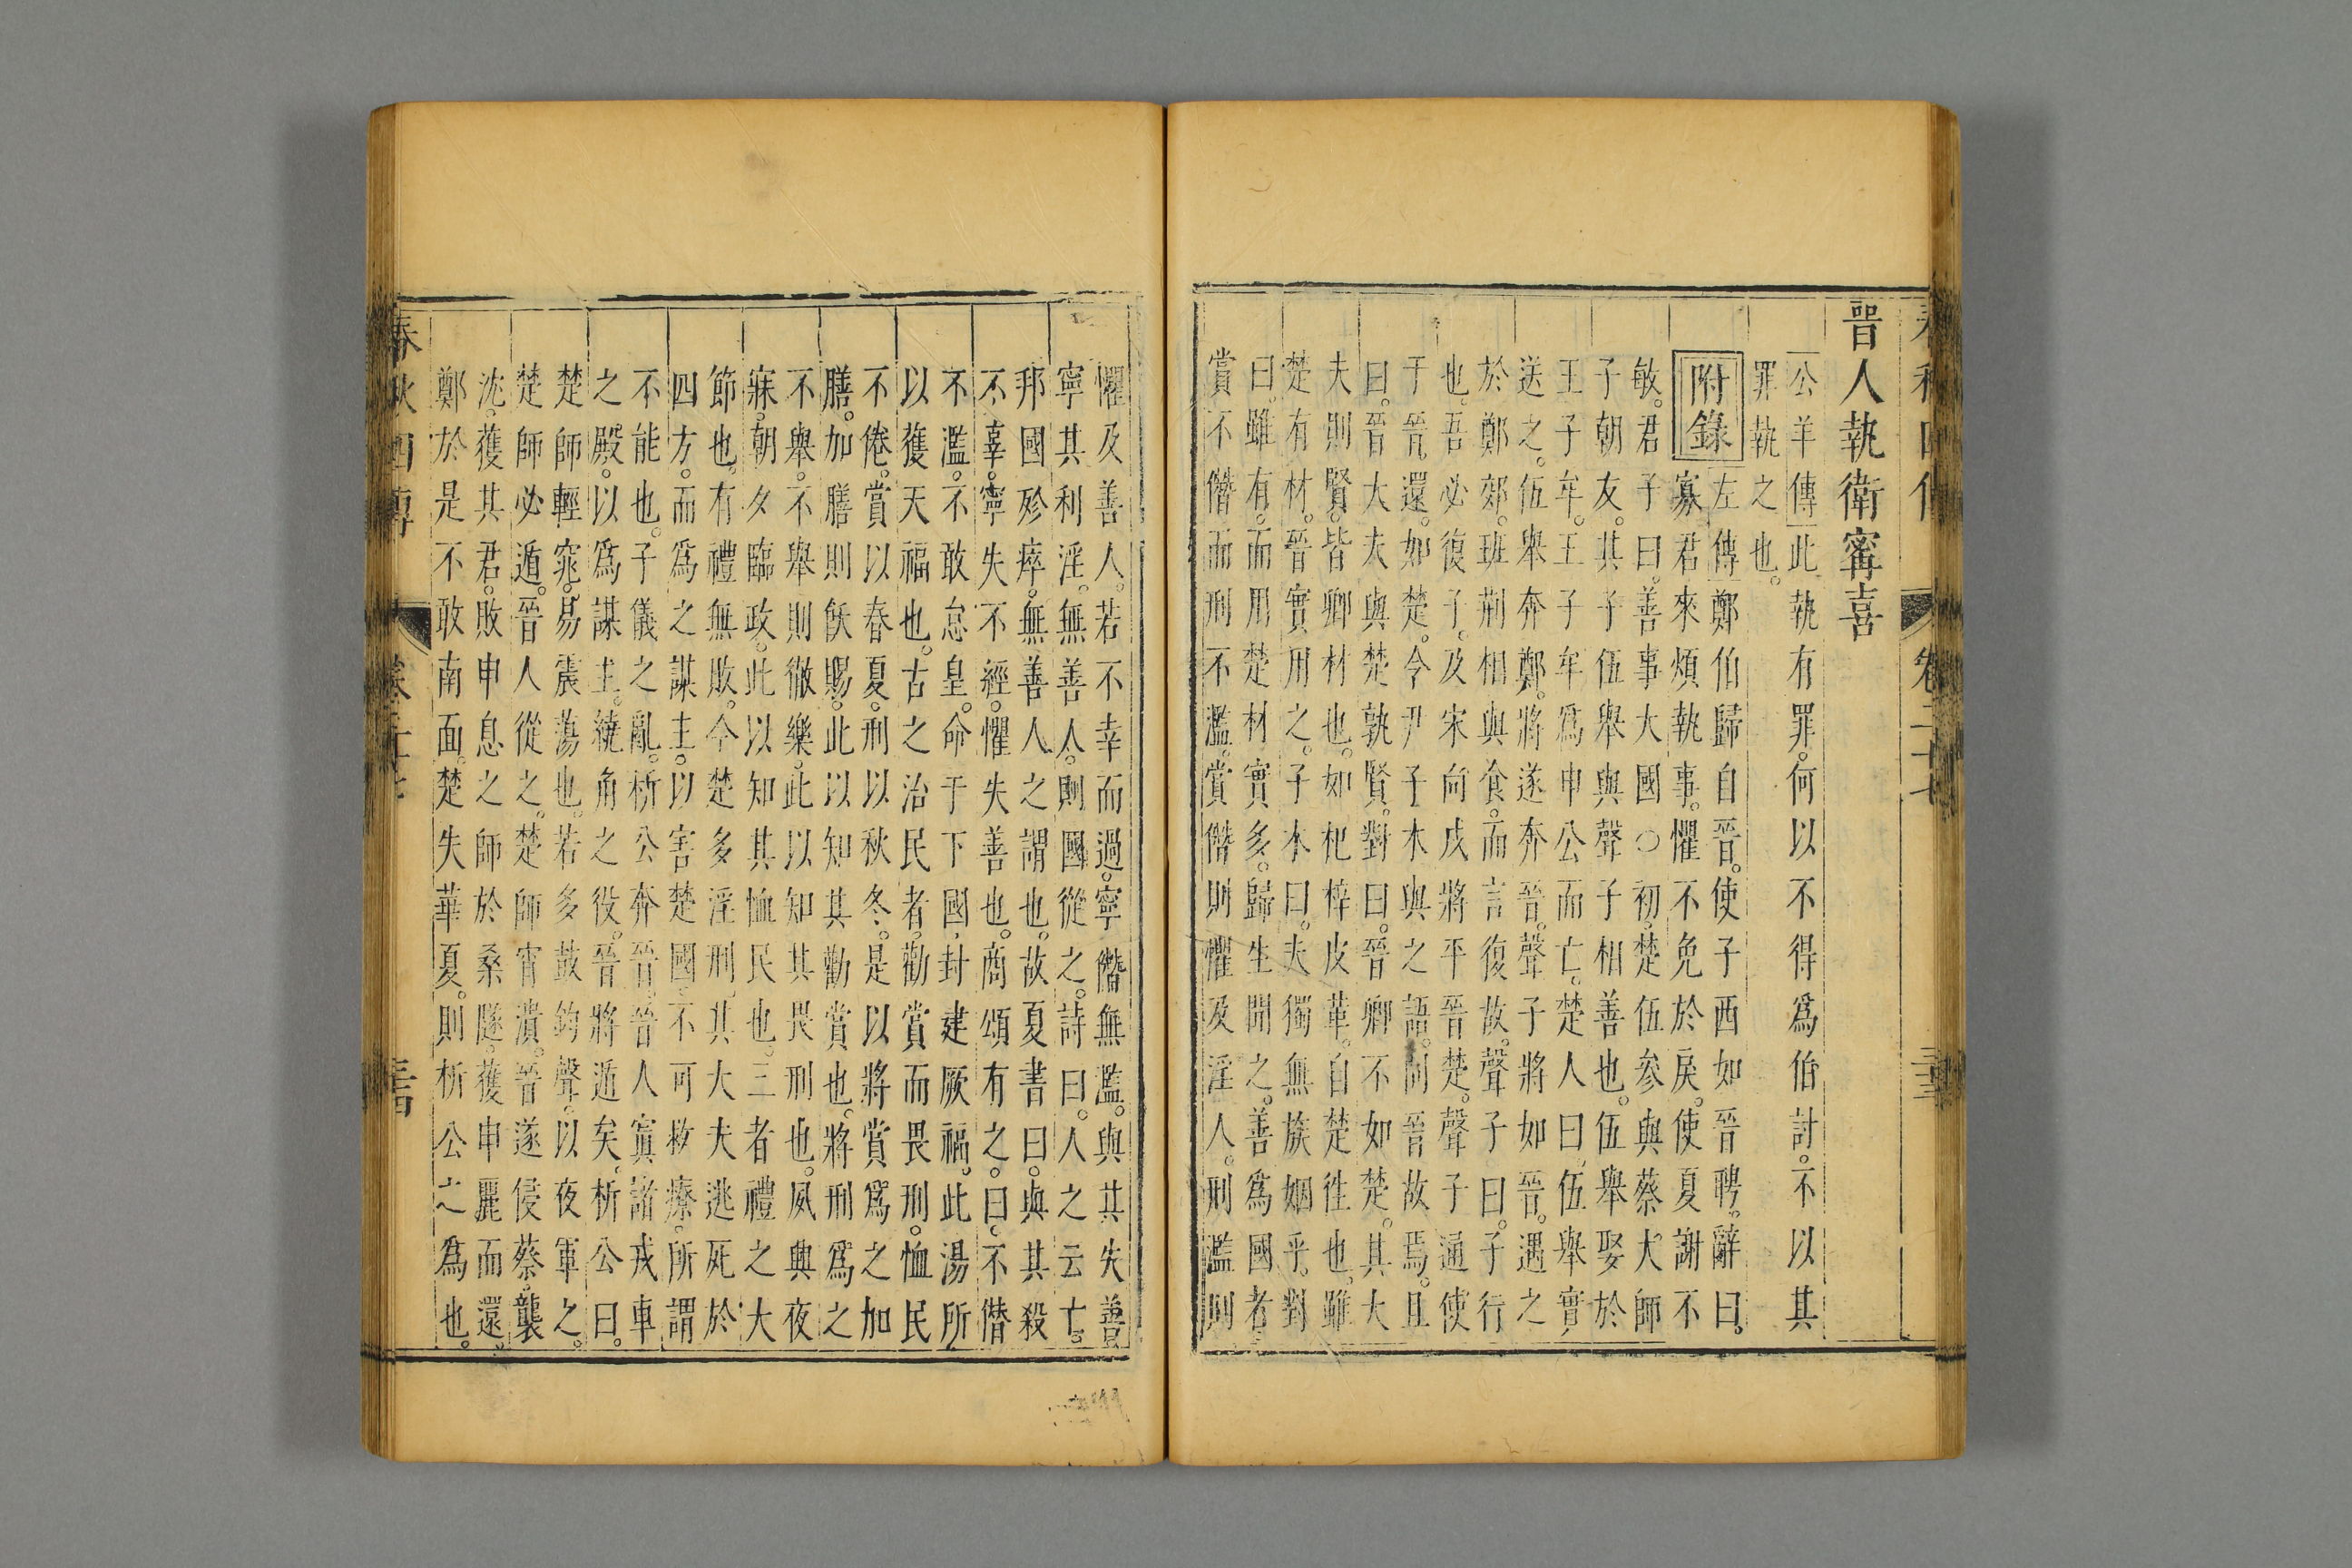 晉人執衛甯喜
公羊傳此執有罪。何以不得爲伯討。不以其
罪執之也。
附錄
左傳鄭伯歸自晉。使子西如晉聘。辭曰。
寡君來煩執事。懼不免於戾。使夏謝不
敏。君子曰。善事大國○初。楚伍參與蔡大師
子朝友。其子伍舉與聲子相善也。伍舉娶於
王子牟。王子牟爲申公而亡。楚人曰。伍舉實
送之。伍舉奔鄭。將遂奔晉。聲子將如晉。遇之
於鄭郊。班荆相與食。而言復故。聲子曰。子行
也。吾必復子。及宋向戌將平晉楚。聲子通使
于晉。還。如楚。令尹子木與之語。問晉故焉。且
曰。晉大夫與楚孰賢。對曰。晉卿不如楚。其大
夫則賢。皆卿材也。如杞梓皮革。自楚徃也。雖
楚有材。晉實用之。子木曰。夫獨無族姻乎。對
曰。雖有。而用楚材實多。歸生聞之。善爲國者。
賞不僭而刑不濫。賞僭則懼及淫人。刑濫則
懼及善人。若不幸而過。寧僭無濫。與其失善
寧其利淫。無善人。則國從之。詩曰。人之云亡。
邦國殄瘁。無善人之謂也。故夏書曰。與其殺
不辜。寧失不經。懼失善也。商頌有之。曰。不僭
不濫。不敢怠皇。命于下國。封建厥福。此湯所
以獲天福也。古之治民者。勸賞而畏刑。恤民
不倦。賞以春夏。刑以秋冬。是以將賞爲之加
膳。加膳則飫賜。此以知其勸賞也。將刑爲之
不舉。不舉則徹樂。此以知其畏刑也。夙興夜
寐。朝夕臨政。此以知其恤民也。三者禮之大
節也。有禮無敗。今楚多淫刑。其大夫逃死於
四方。而爲之謀主。以害楚國。不可救療。所謂
不能也。子儀之亂。析公奔晉。晉人寘諸戎車
之殿。以爲謀主。繞角之役。晉將遁矣。析公曰。
楚師輕窕。易震蕩也。若多鼓鈞聲。以夜軍之。
楚師必遁。晉人從之。楚師宵潰。晉遂侵蔡。襲
沈。獲其君。敗申息之師於桑隧。獲申麗而還。
鄭於是不敢南面。楚失華夏。則析公之爲也。
春秋四傳